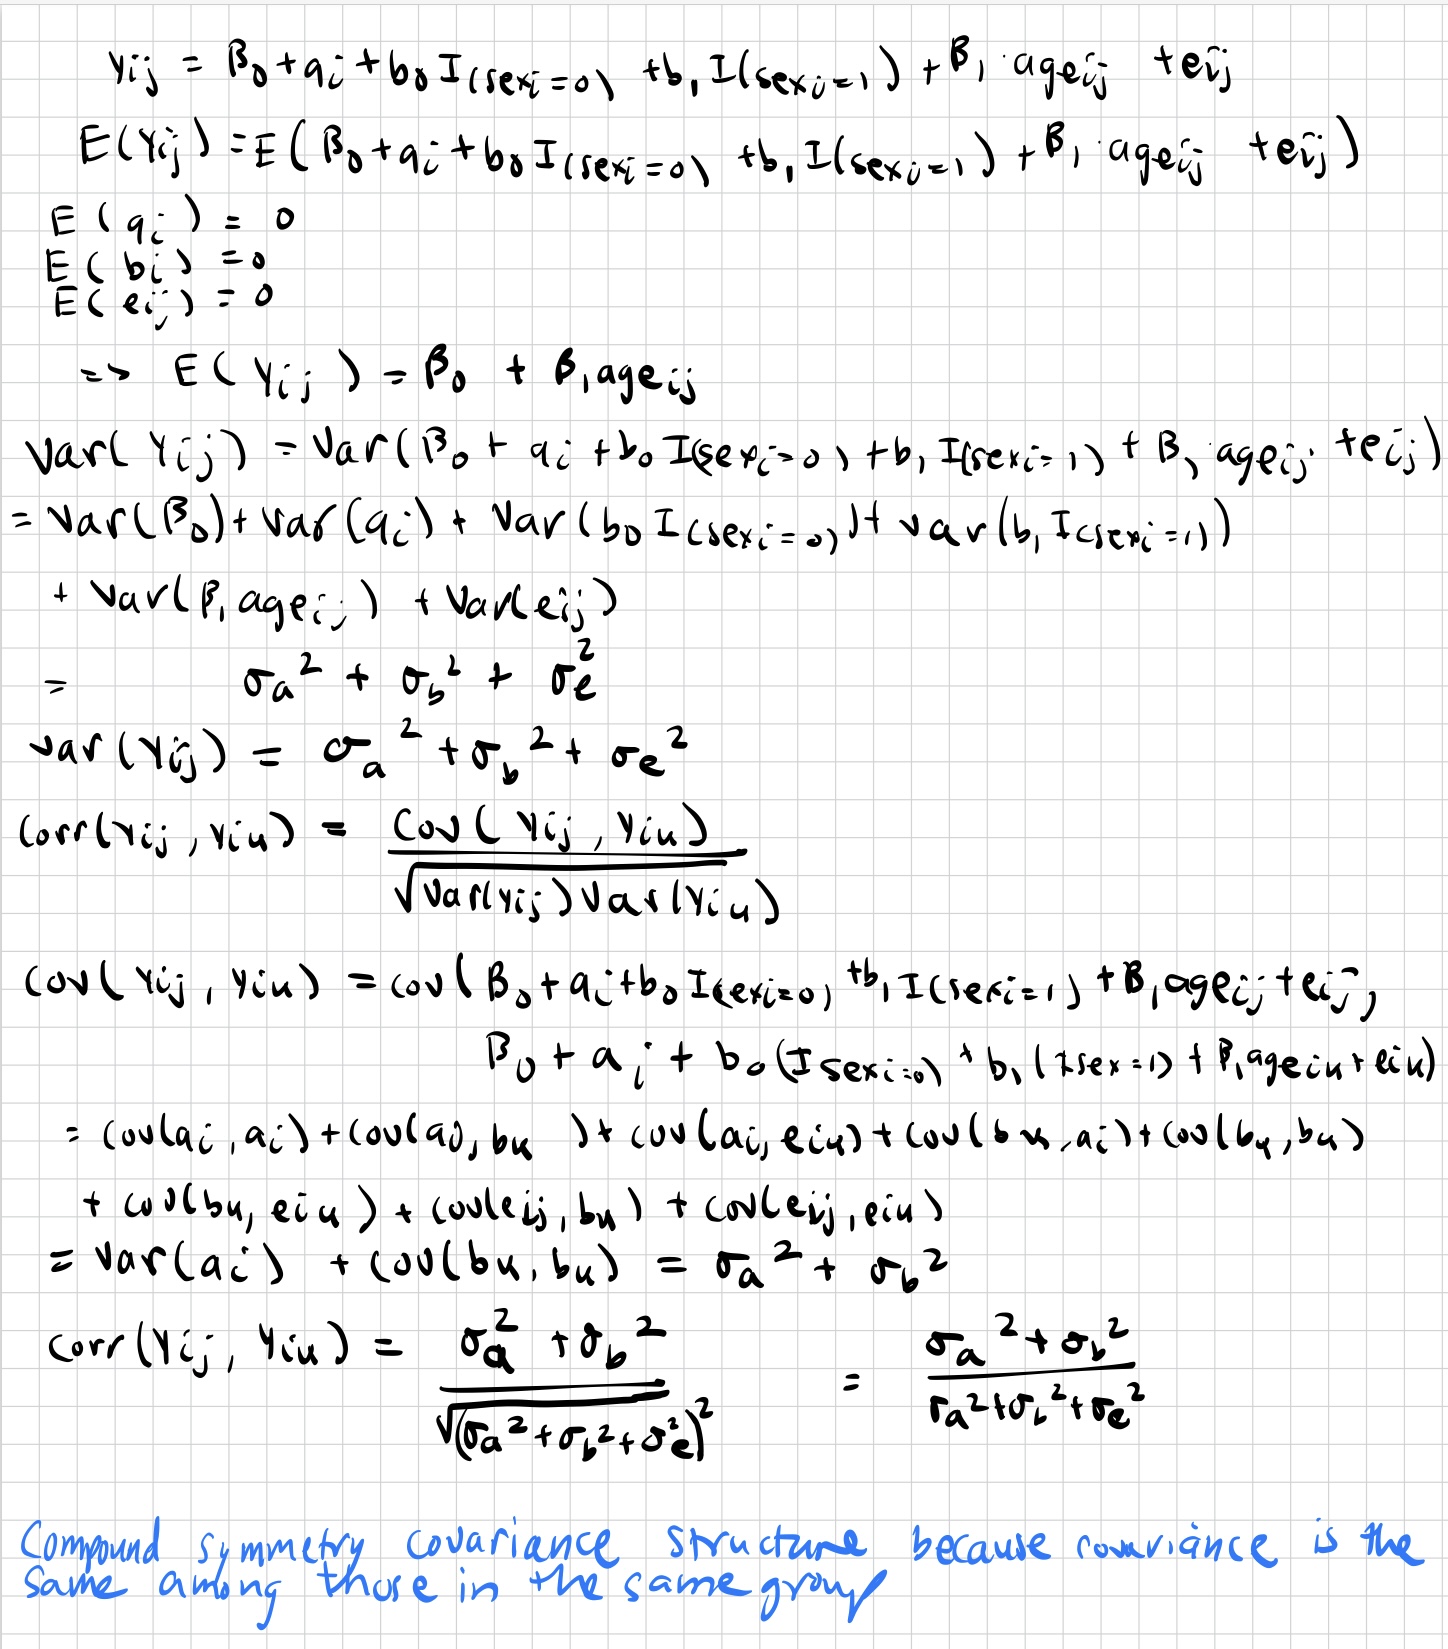 Yij = β0 + ai + b0 I(sexi=0) + b1 I(sexi=1) + β1 · ageij + eij
E(Yij) = E(β0 + ai + b0 I(sexi=0) + b1 I(sexi=1) + β1 · ageij + eij)
E(ai) = 0
E(bi) = 0
E(eij) = 0
=> E(Yij) = β0 + β1 ageij
Var(Yij) = Var(β0 + ai + b0 I(sexi=0) + b1 I(sexi=1) + β1 · ageij + eij)
= Var(β0) + Var(ai) + Var(b0 I(sexi=0)) + var(b1 I(sexi=1))
+ Var(β1 ageij) + Var(eij)
= σa² + σb² + σe²
var(Yij) = σa² + σb² + σe²
Corr(Yij, Yik) = Cov(Yij, Yik) / √Var(Yij)Var(Yik)
Cov(Yij, Yik) = cov(β0 + ai + b0 I(sexi=0) + b1 I(sexi=1) + β1 ageij + eij,
β0 + ai + b0(I sexi=0) + b1(Isex=1) + β1 ageik + eik)
= cov(ai, ai) + cov(ai, bk) + cov(ai, eik) + cov(bk, ai) + cov(bk, bk)
+ cov(bk, eik) + cov(eij, bk) + cov(eij, eik)
= Var(ai) + cov(bk, bk) = σa² + σb²
Corr(Yij, Yik) = σa² + σb² / √(σa² + σb² + σe²)² = σa² + σb² / σa² + σb² + σe²
Compound symmetry covariance structure because covariance is the
same among those in the same group